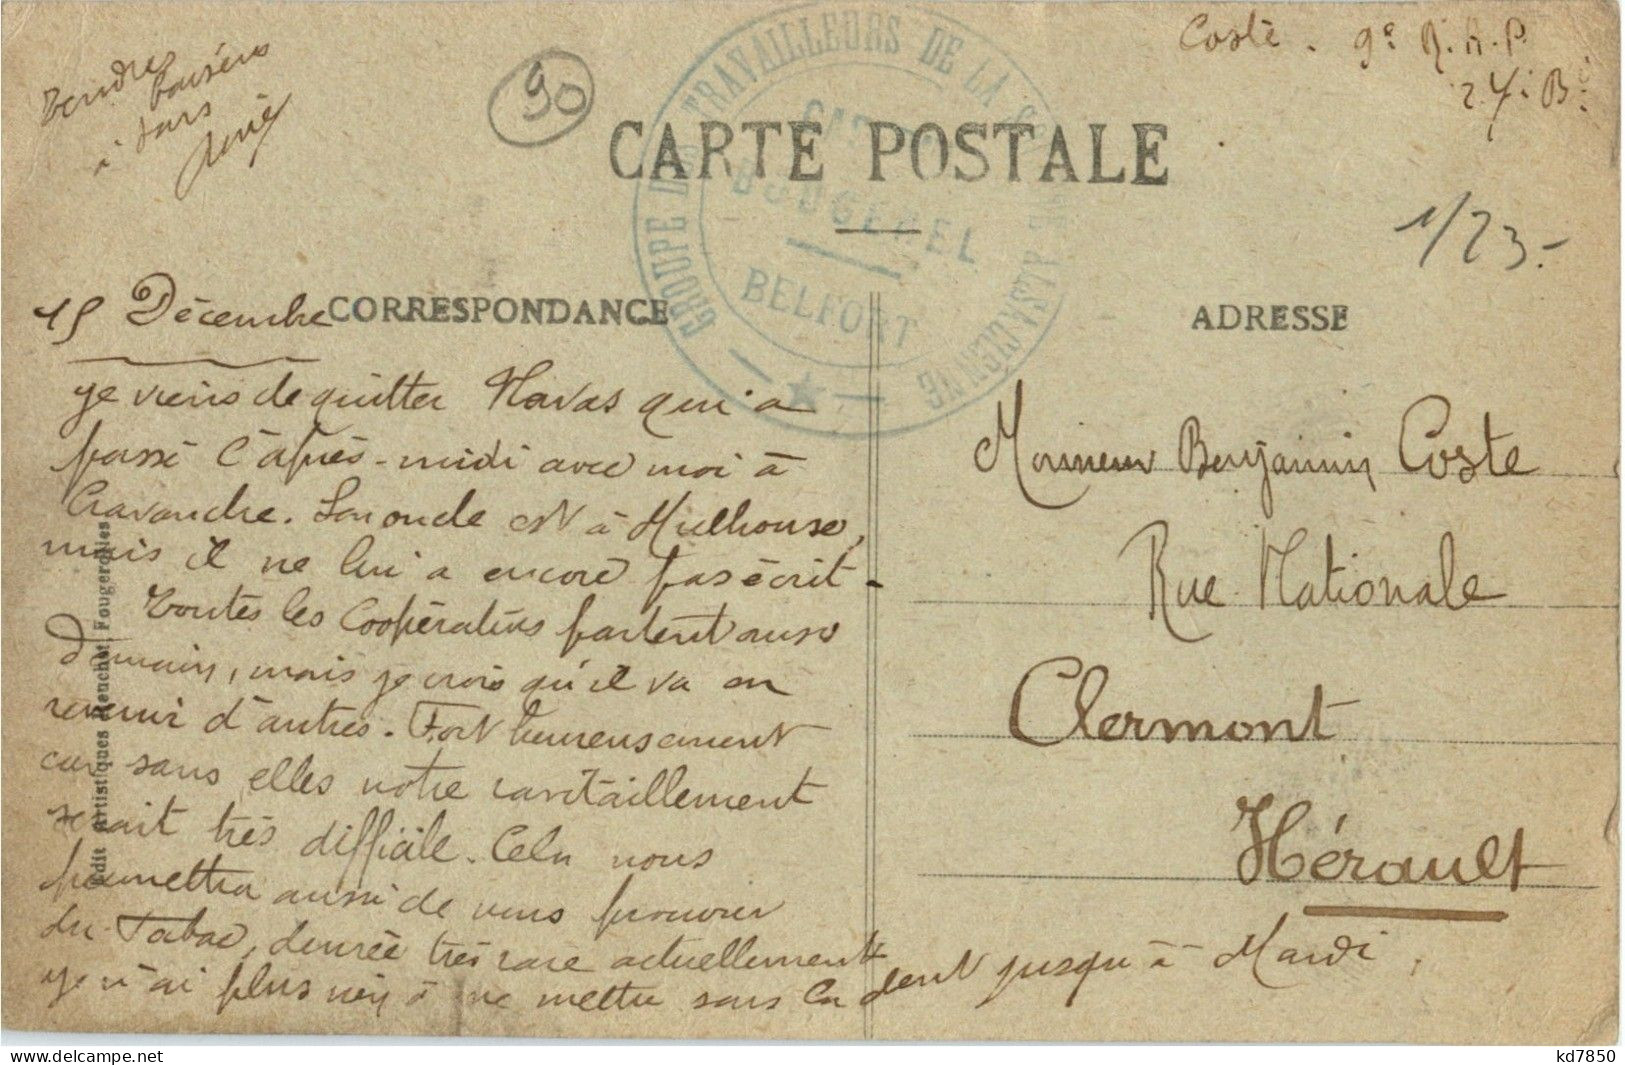 Tendres
baisers
à tous
Coste. 9e R.A.P.
24e Bie
90
CARTE POSTALE
GROUPE DE TRAVAILLEURS DE LA ALSACIENNE
BOUGENEL
BELFORT
1/23.-
15 Décembre
CORRESPONDANCE
ADRESSE
Je viens de quitter Navas qui a
passé l'après-midi avec moi à
Cravanche. Son oncle est à Mulhouse,
mais il ne lui a encore pas écrit -
Toutes les Coopératives partent aussi
Demain, mais je crois qu'il va en
revenir d'autres. Fort heureusement
car sans elles notre ravitaillement
serait très difficile. Cela nous
permettra aussi de nous procurer
du Tabac, denrée très rare actuellement
Je n'ai plus rien à me mettre sous la dent jusqu'à Mardi.
Monsieur Benjamin Coste
Rue Nationale
Clermont
Hérault
Edit Artistiques Reuchet, Fougerolles
Delcampe.net
kd7850